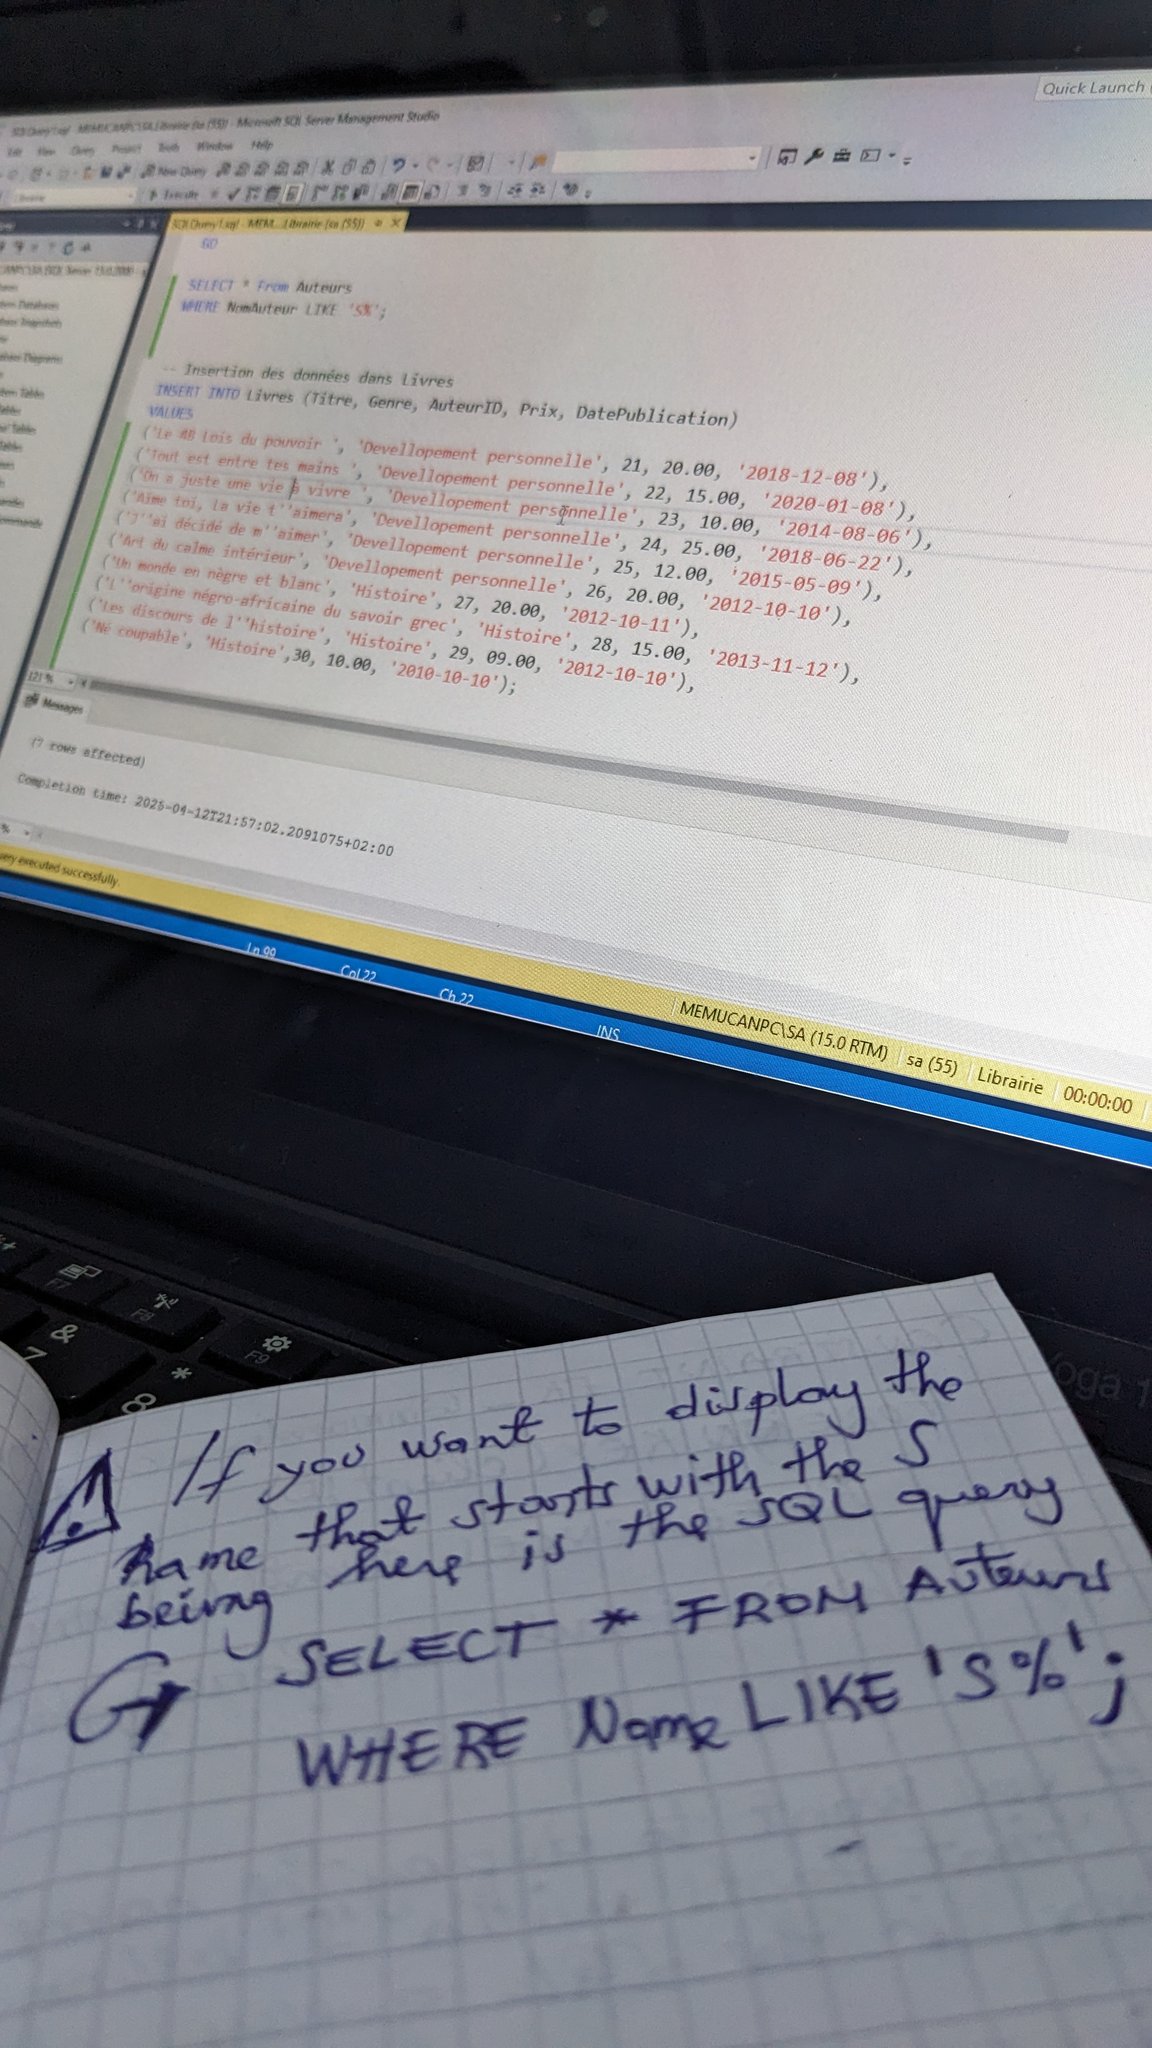 Quick Launch
Microsoft SQL Server Management Studio
Query Project Tools Window Help
New Query
Execute
GO
SELECT * From Auteurs
WHERE NomAuteur LIKE 'S%';
-- Insertion des données dans Livres
INSERT INTO Livres (Titre, Genre, AuteurID, Prix, DatePublication)
VALUES
('Le 48 Lois du pouvoir ', 'Devellopement personnelle', 21, 20.00, '2018-12-08'),
('Tout est entre tes mains ', 'Devellopement personnelle', 22, 15.00, '2020-01-08'),
('On a juste une vie à vivre ', 'Devellopement personnelle', 23, 10.00, '2014-08-06'),
('Aime toi, la vie t''aimera', 'Devellopement personnelle', 24, 25.00, '2018-06-22'),
('J''ai décidé de m''aimer', 'Devellopement personnelle', 25, 12.00, '2015-05-09'),
('Art du calme intérieur', 'Devellopement personnelle', 26, 20.00, '2012-10-10'),
('Un monde en nègre et blanc', 'Histoire', 27, 20.00, '2012-10-11'),
('L''origine négro-africaine du savoir grec', 'Histoire', 28, 15.00, '2013-11-12'),
('Les discours de l''histoire', 'Histoire', 29, 09.00, '2012-10-10'),
('Né coupable', 'Histoire',30, 10.00, '2010-10-10');
121 %
Messages
(7 rows affected)
Completion time: 2025-04-12T21:57:02.2091075+02:00
executed successfully.
MEMUCANPC\SA (15.0 RTM) sa (55) Librairie 00:00:00
Ln 99 Col 22 Ch 22 INS
F7 F8 F9
& 7 * 8
If you want to display the
name that starts with the S
beirng here is the SQL query
SELECT * FROM Auteurs
WHERE Name LIKE 'S%';